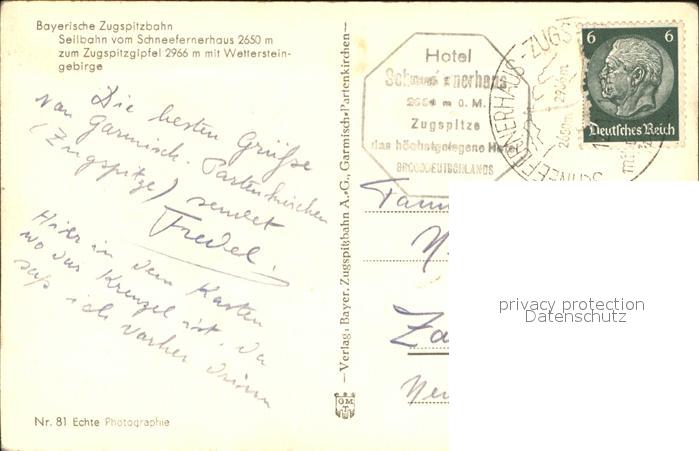 Bayerische Zugspitzbahn
Seilbahn vom Schneefernerhaus 2650 m
zum Zugspitzgipfel 2966 m mit Wetterstein-
gebirge
Die besten Grüße
von Garmisch-Partenkirchen
(Zugspitze) sendet
Fredel.
Hier in dem Kasten
wo das Kreuzel ist, da
saß ich vorher drinn
Nr. 81 Echte Photographie
– Verlag: Bayer. Zugspitzbahn A.-G., Garmisch-Partenkirchen –
Hotel
Schneefernerhaus
2650 m ü. M.
Zugspitze
das höchstgelegene Hotel
GROSSDEUTSCHLANDS
6 6
Deutsches Reich
2650m 2966m
Za
privacy protection
Datenschutz